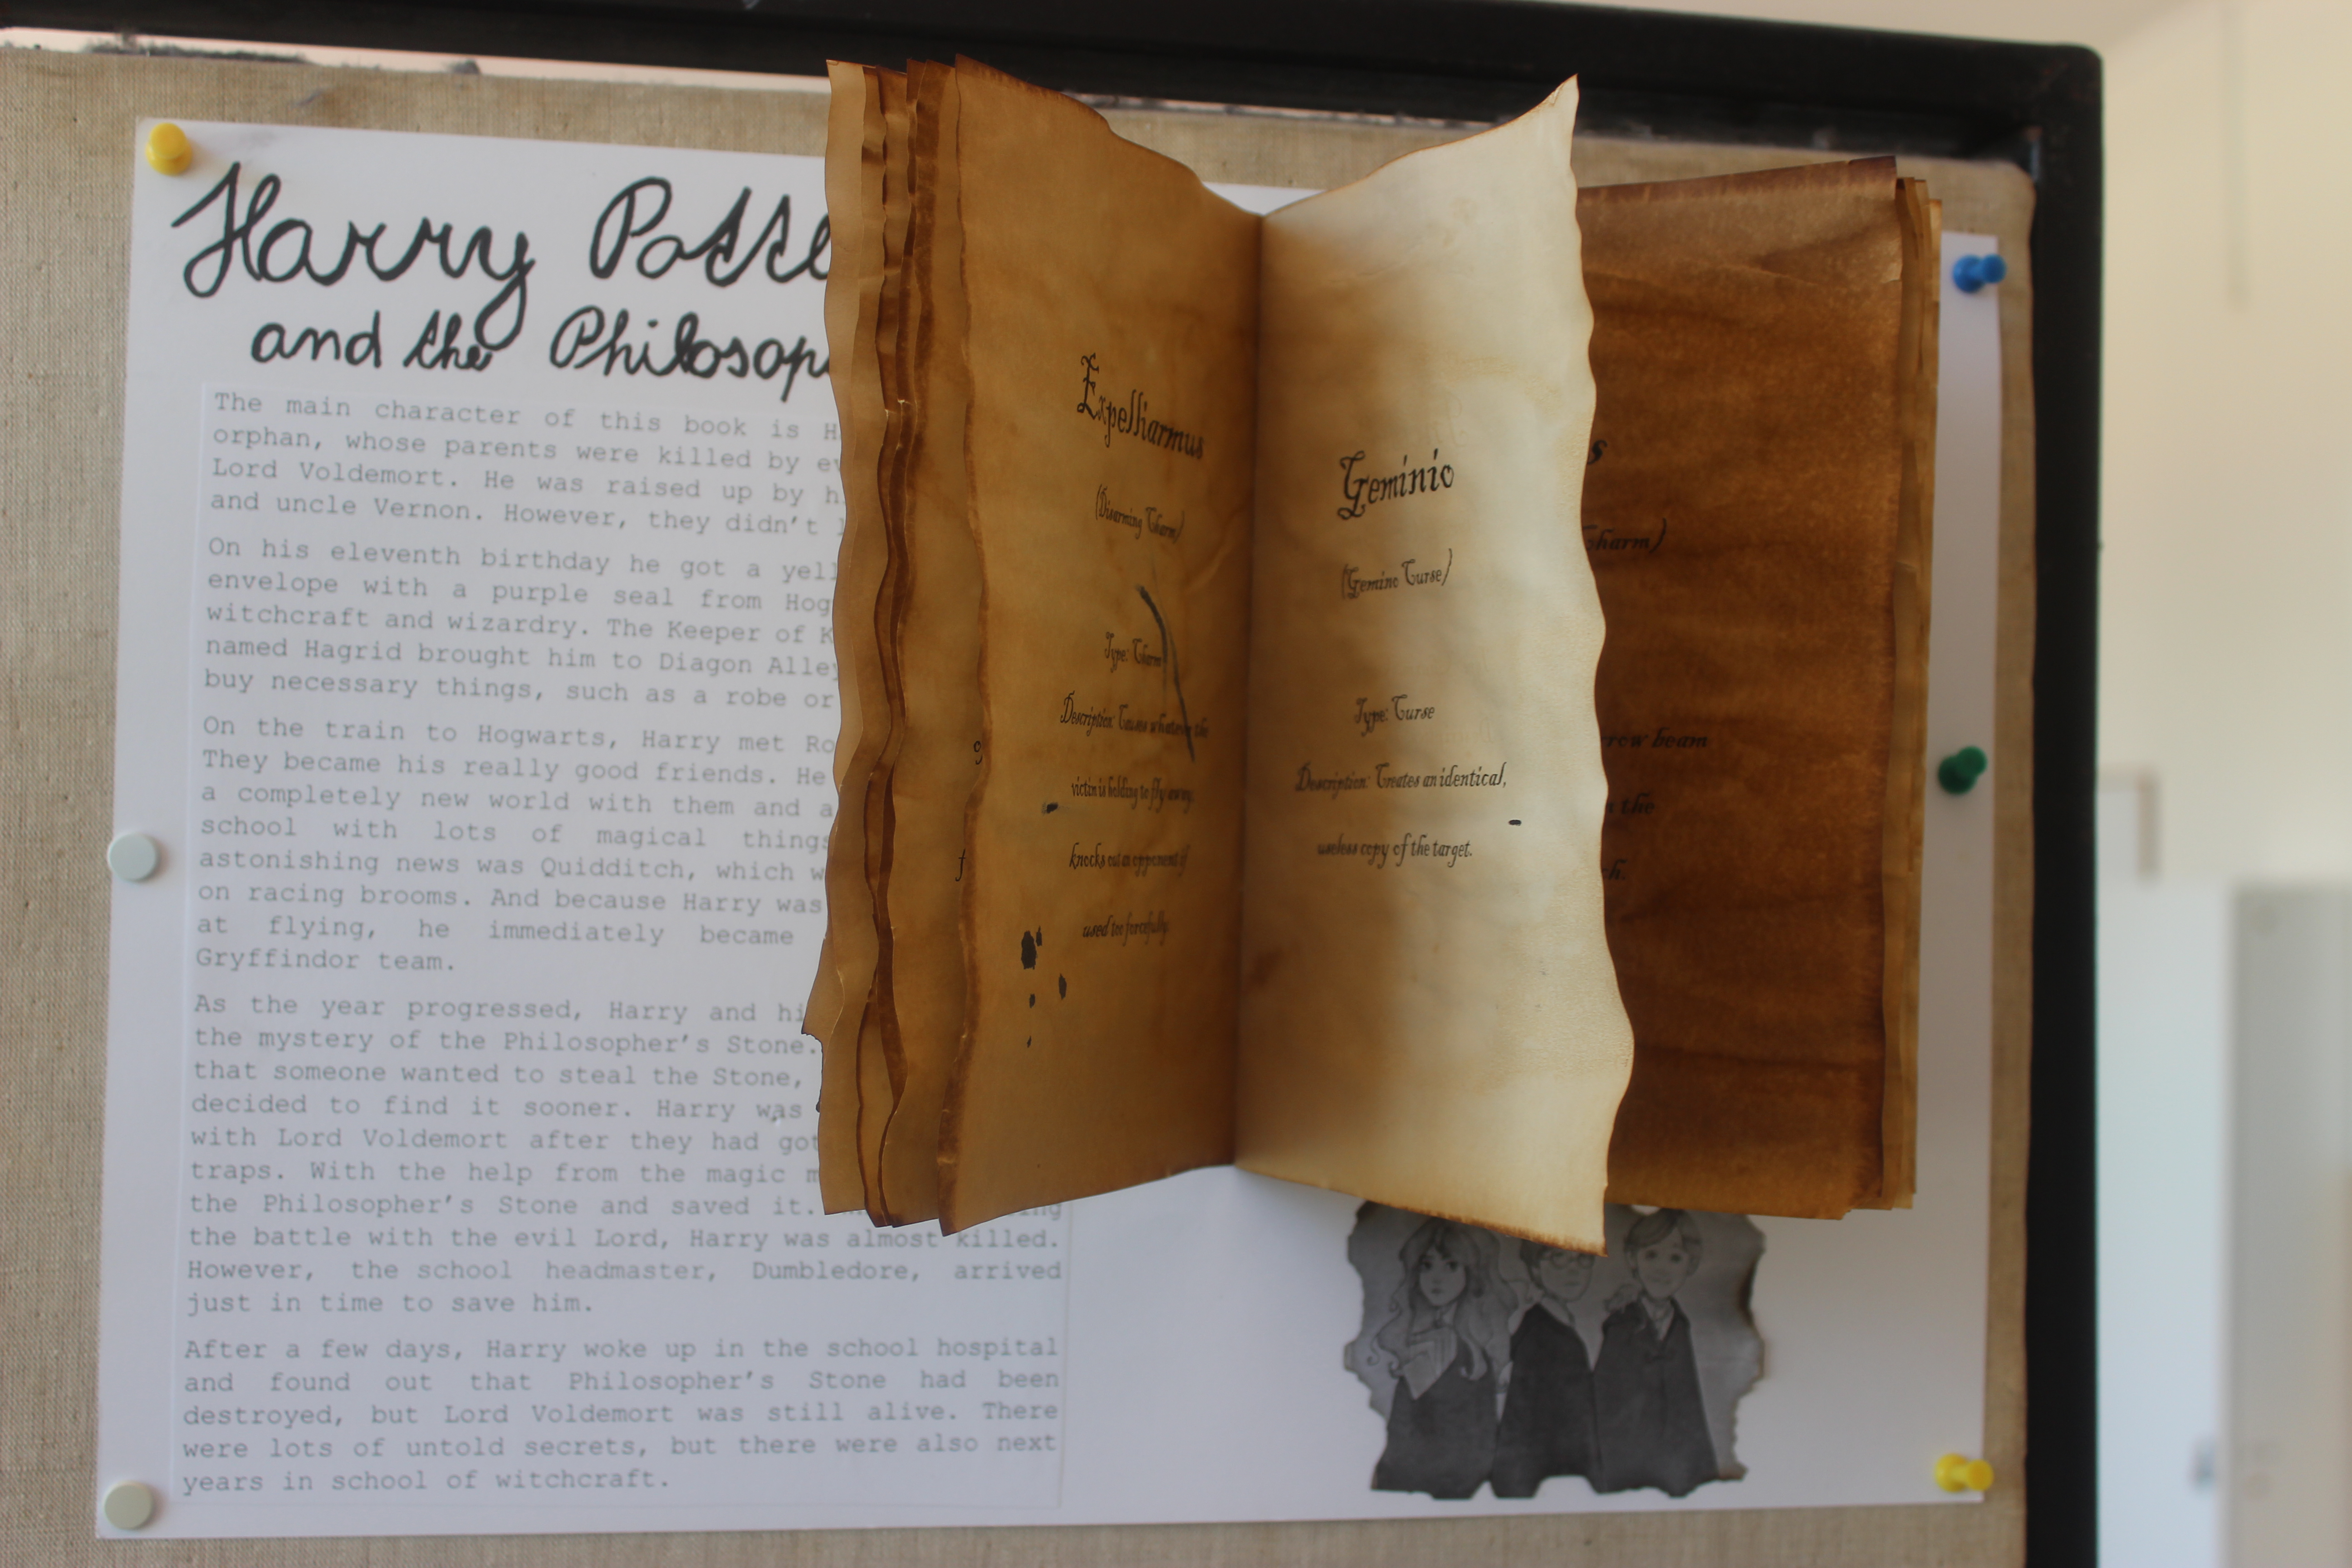 Harry Potte
and the Philosop
The main character of this book is H
orphan, whose parents were killed by ev
Lord Voldemort. He was raised up by h
and uncle Vernon. However, they didn't
On his eleventh birthday he got a yell
envelope with a purple seal from Hog
witchcraft and wizardry. The Keeper of K
named Hagrid brought him to Diagon Alley
buy necessary things, such as a robe or
On the train to Hogwarts, Harry met Ro
They became his really good friends. He
a completely new world with them and a
school with lots of magical things
astonishing news was Quidditch, which w
on racing brooms. And because Harry was
at flying, he immediately became
Gryffindor team.
As the year progressed, Harry and hi
the mystery of the Philosopher's Stone.
that someone wanted to steal the Stone,
decided to find it sooner. Harry was
with Lord Voldemort after they had got
traps. With the help from the magic m
the Philosopher's Stone and saved it.
the battle with the evil Lord, Harry was almost killed.
However, the school headmaster, Dumbledore, arrived
just in time to save him.
After a few days, Harry woke up in the school hospital
and found out that Philosopher's Stone had been
destroyed, but Lord Voldemort was still alive. There
were lots of untold secrets, but there were also next
years in school of witchcraft.
g
f
Expelliarmus
(Disarming Charm)
Type: Charm
Description: Causes whatever the
victim is holding to fly away.
knocks out an opponent if
used too forcefully.
Geminio
(Gemino Curse)
Type: Curse
Description: Creates an identical,
useless copy of the target.
s
Charm)
rrow beam
the
ch.